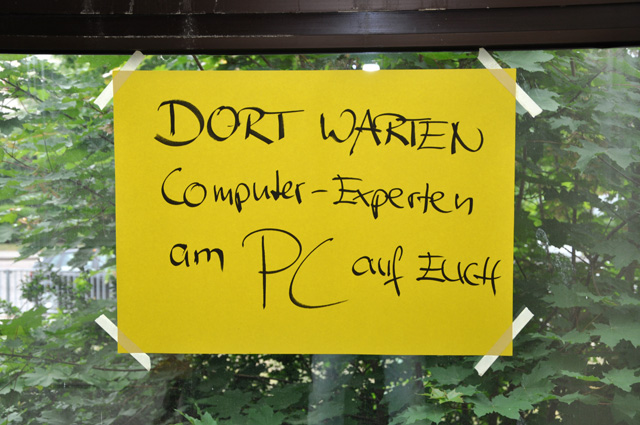 DORT WARTEN
Computer-Experten
am PC auf EUCH